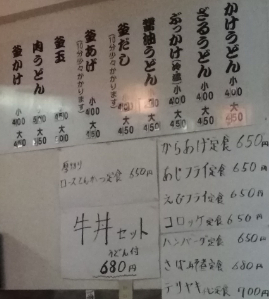 かけうどん 小 400 大 450
ざるうどん 小 400 大 450
ぶっかけ(冷・温) 小 400 大 450
醤油うどん
釜だし (10分少々かかります)
釜あげ (10分少々かかります) 小 400 大 450
釜玉
肉うどん
釜かけ 小 400 大 450
厚切り
ロースとんかつ定食 650円
牛丼セット
うどん付
680円
からあげ定食 650円
あじフライ定食 650円
えびフライ定食 650円
コロッケ定食 650円
ハンバーグ定食 650円
さば 定食 680円
テリヤキ 定食 700円